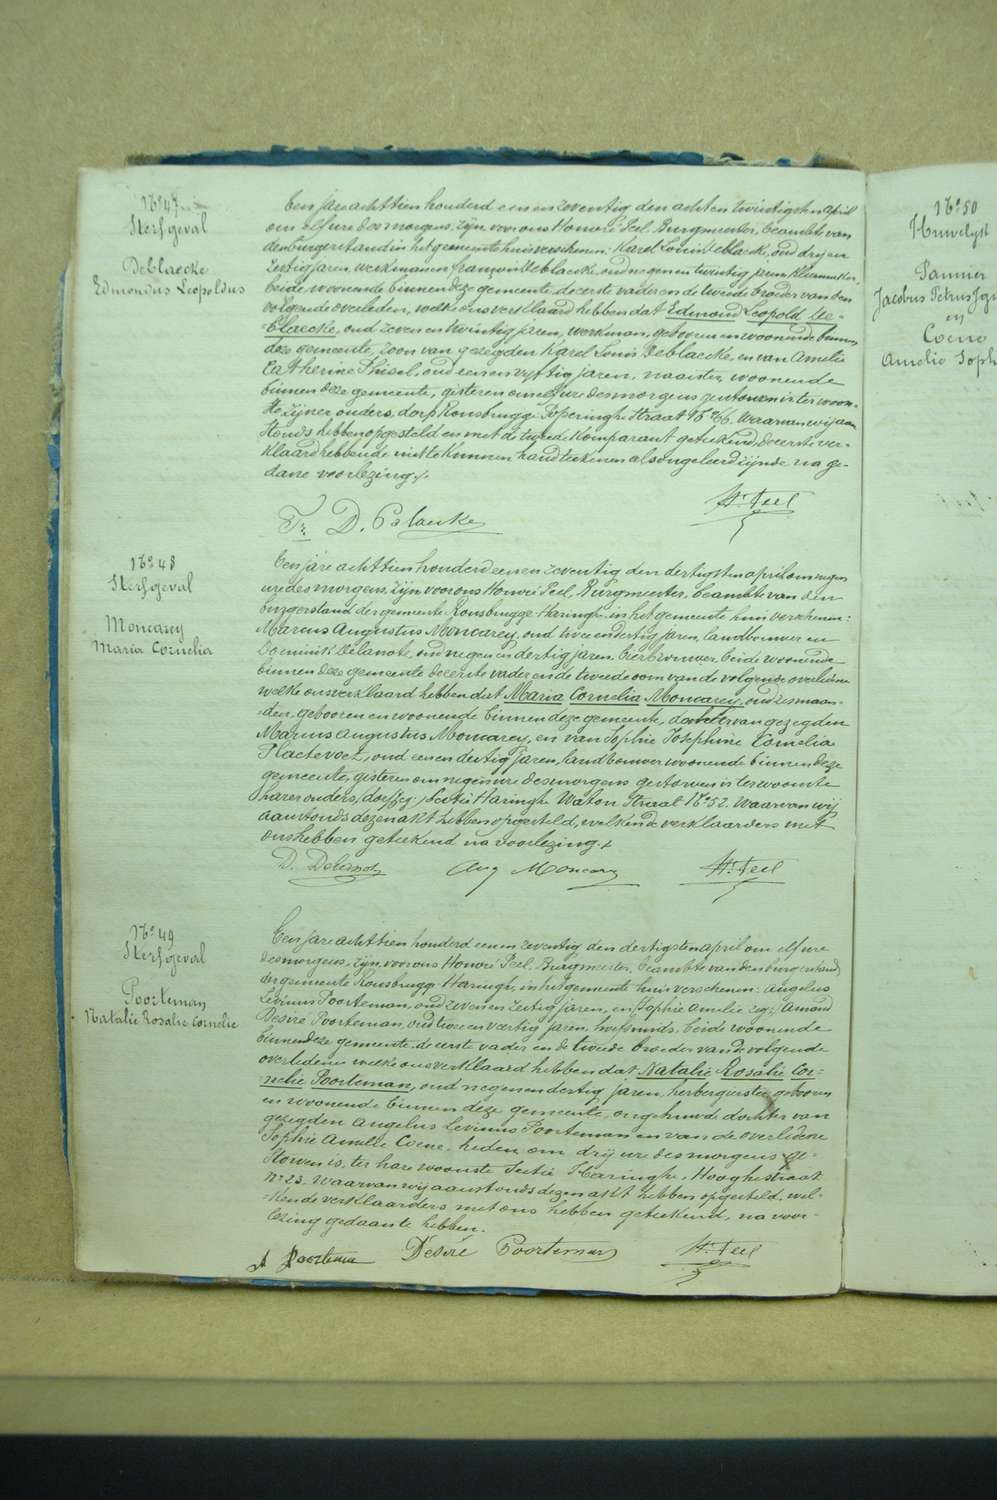 No 47
Sterfgeval
Deblaecke
Edmondus Leopoldus
Een jare achttien honderd een en zeventig den acht en twintigsten april
om elf ure des morgens, zijn voor ons Honoré Peel, Burgmeester, beambte van
den burgerstand in het gemeente huis verschenen: Karel Louis Deblaecke, oud drij en
zestig jaren, werkman en françois Deblaecke, oud negen en twintig jaren, kleermaker,
beide woonende binnen deze gemeente, de eerste vader en de tweede broeder van den
volgende overleden, welke ons verklaard hebben dat Edmond Leopold De=
=blaecke, oud zeven en twintig jaren, werkman, geboren en woonende binnen
deze gemeente, zoon van gezegden Karel Louis Deblaecke, en van Amelie
Catherine Thisel, oud een en vyftig jaren, naaister, woonende
binnen deze gemeente, gisteren om elf ure des morgens gestorven is ter woon-
ste zijner ouders, dorp Rousbrugge Poperinghe straat No Waarvan wij aan
stonds hebben opgesteld en met de tweede Komparant geteekend, de eerste ver-
klaard hebbende niet te kunnen handteekenen als ongeleerd zijnde na ge-
dane voorlezing.
Fr D. Balaecke
H. Peel
No 48
Sterfgeval
Moncarey
Maria Cornelia
Een jare achttien honderd een en zeventig den dertigsten april om negen
ure des morgens, zijn voor ons Honoré Peel, Burgmeester, beambte van den
burgerstand der gemeente Rousbrugge-Haringhe, in het gemeente huis verschenen:
Marcus Augustus Moncarey, oud twee en dertig jaren, landbouwer en
Dominik Delanote, oud negen en dertig jaren, bierbrouwer, beide woonende
binnen deze gemeente de eerste vader en de tweede oom van de volgende overledene
welke ons verklaard hebben dat Maria Cornelia Moncarey, oud zes maan-
den, gebooren en woonende binnen deze gemeente, dochter van gezegden
Marcus Augustus Moncarey, en van Sophie Josephine Cornelia
Plactevoet, oud een en dertig jaren, landbouwer woonende binnen deze
gemeente, gisteren om negen ure des morgens gestorven is ter woonste
harer ouders, Sectie Haringhe Watou Straat No 52. Waarvan wij
aanstonds dezen akt hebben opgesteld, welken de verklaarders met
ons hebben geteekend na voorlezing.
D. Delanote
Aug Moncarey
H. Peel
No 49
Sterfgeval
Poorteman
Natalie Rosalie Cornelie
Een jare achttien honderd een en zeventig den dertigsten april om elf ure
des morgens, zijn voor ons Honoré Peel, Burgmeester, beambte van den burgerstand
der gemeente Rousbrugge Haringhe, in het gemeente huis verschenen: Angelus
Levinus Poorteman, oud zeven en zestig jaren, en Sophie Amelie zegd: Amand
Desiré Poorteman, oud twee en veertig jaren, hoefsmids, beide woonende
binnen deze gemeente de eerste vader en de tweede broeder van de volgende
overledene welke ons verklaard hebben dat Natalie Rosalie Cor=
=nelie Poorteman, oud negen en dertig jaren, herbergierster, geboren
en woonende binnen deze gemeente, ongehuwde dochter van
gezegden Angelus Levinus Poorteman en van de overledene
Sophie Amelie Coene, heden om drij ure des morgens ge-
storven is, ter hare woonste Sectie Haringhe, Hooghestraat
No 23. Waarvan wij aanstonds dezen akt hebben opgesteld, wel-
=ken de verklaarders met ons hebben geteekend, na voor-
lezing gedaan te hebben.
A Poorteman
Desiré Poorteman
H. Peel
No 50
Huwelijk
Pannier
Jacobus Petrus
en
Coene
Amelie Soph